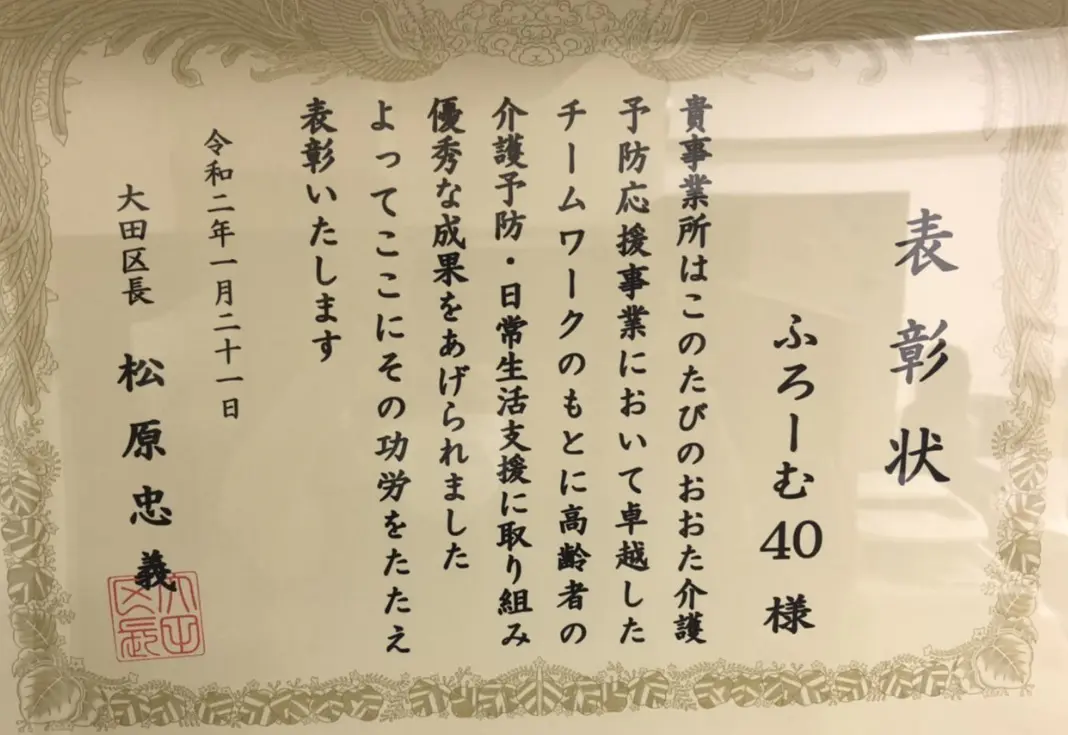 表彰状
ふろーむ40様
貴事業所はこのたびのおおた介護
予防応援事業において卓越した
チームワークのもとに高齢者の
介護予防・日常生活支援に取り組み
優秀な成果をあげられました
よってここにその功労をたたえ
表彰いたします
令和二年一月二十一日
大田区長 松原忠義
大田区長